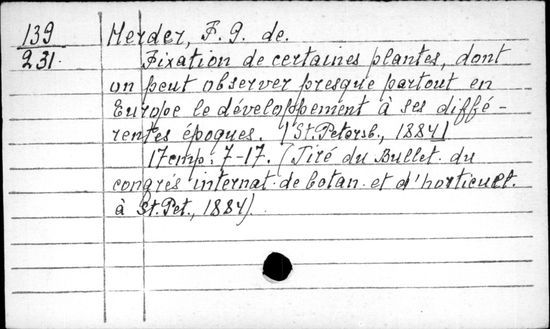 139 Herder, F. G. de.
231. Fixation de certaines plantes, dont
on peut observer presque partout en
Europe le développement à ses diffé-
rentes époques. [St. Petersb., 1884]
17 cmp. 7-17. (Tiré du Bullet. du
congrés internat. de botan. et d'horticult.
à St. Pet., 1884).